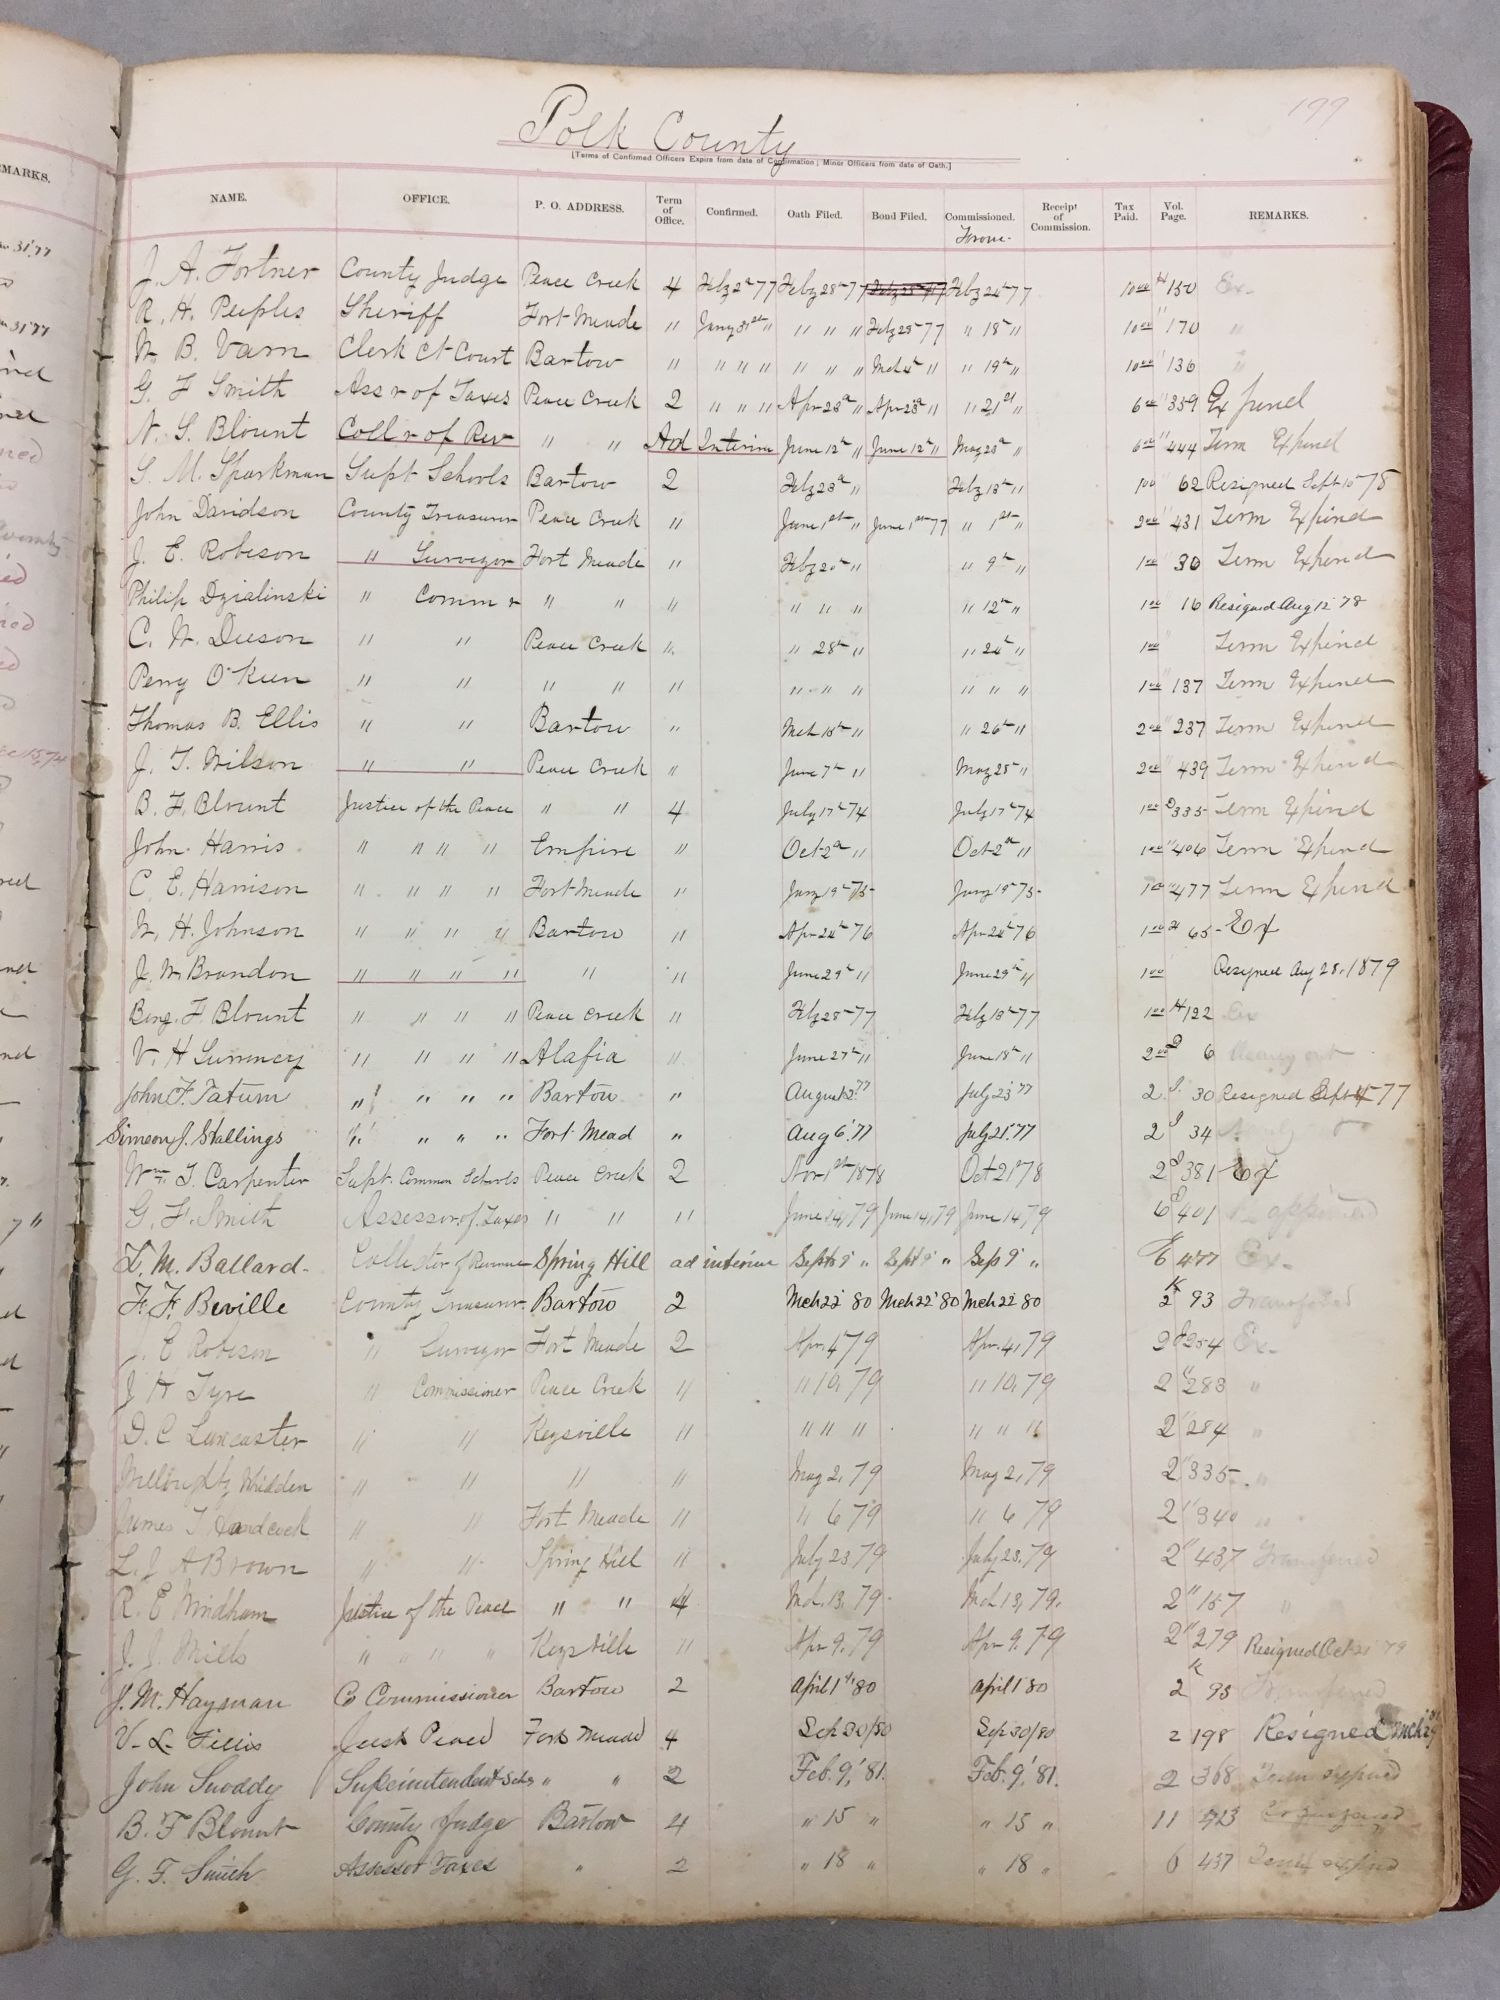 199
Polk County
[Terms of Confirmed Officers Expire from date of Confirmation; Minor Officers from date of Oath.]
NAME. OFFICE. P. O. ADDRESS. Term of Office. Confirmed. Oath Filed. Bond Filed. Commissioned. From. Receipt of Commission. Tax Paid. Vol. Page. REMARKS.
J. A. Fortner County Judge Peace Creek 4 Feby 2d 77 Feby 28th 77 Feby 24th 77 10 00 H 150 Ex.
R. H. Peeples Sheriff Fort Meade " Jany 31st " " " " Feby 28th 77 " 18th " 10 00 " 170 "
W. B. Varn Clerk Ct Court Bartow " " " " " " " Mch 4th " " 19th " 10 00 " 136 "
G. F. Smith Assr of Taxes Peace Creek 2 " " " Apr 28th " Apr 28th " " 21st " 6 00 " 359 Expired
N. S. Blount Collr of Rev " " Ad Interim June 12th " June 12th " May 28th " 6 00 " 444 Term Expired
S. M. Sparkman Supt Schools Bartow 2 Feby 23d " Feby 13th " 1 00 " 62 Resigned Sept 10 78
John Davidson County Treasurer Peace Creek " June 1st " June 1st 77 " 1st " 2 00 " 431 Term Expired
J. E. Robeson " Surveyor Fort Meade " Feby 20th " " 9th " 1 00 30 Term Expired
Philip Dzialinski " Commr " " " " " " " 12th " 1 00 " 16 Resigned Aug 12 78
C. W. Deeson " " Peace Creek " " 28th " " 24th " 1 00 " Term Expired
Perry O'Kien " " " " " " " " " " " 1 00 " 137 Term Expired
Thomas B. Ellis " " Bartow " Mch 15th " " 26th " 2 00 " 237 Term Expired
J. T. Wilson " " Peace Creek " June 7th " May 25th " 2 00 " 439 Term Expired
B. F. Blount Justice of the Peace " " 4 July 17th 74 July 17th 74 1 00 D 335 Term Expired
John Harris " " " " Empire " Oct 2d " Oct 2d " 1 00 " 406 Term Expired
C. E. Harrison " " " " Fort Meade " Jany 19th 75 Jany 19th 75 1 00 " 477 Term Expired
W. H. Johnson " " " " Bartow " Apr 24th 76 Apr 24th 76 1 00 65 Ex
J. W. Brandon " " " " " " June 29th " June 29th " 1 00 Resigned Aug 28, 1879
Benj. F. Blount " " " " Peace Creek " Feby 28th 77 Feby 13th 77 1 00 H 122 Ex
V. H Summey " " " " Alafia " June 27th " June 18th " 2 00 6
John F. Tatum " " " " Bartow " August 2 77 July 23 77 2 30 Resigned Sept 77
Simeon J. Stallings " " " " Fort Mead " Aug 6 '77 July 21 '77 2 34
Wm. T. Carpenter Supt. Common Schools Peace Creek 2 Nov 1st 1878 Oct 21 '78 2 381 Ex
G. F. Smith Assessor of Taxes " " " June 14, 79 June 14, 79 June 14 79 6 401 Re appointed
L. M. Ballard. Collector of Revenue Spring Hill ad interim Sept 8 " Sept 8 " Sep 9 " 6 477 Ex.
F. F. Beville County Treasurer. Bartow 2 Mch 22' 80 Mch 22' 80 Mch 22 80 2 K 93 Transfered
J. E Robeson " Surveyor Fort Meade 2 Apr. 4, 79 Apr. 4, 79 2 254 Ex.
J. H Tyre " Commissioner Peace Creek " " 10, 79 " 10, 79 2 " 283 "
D. C Lancaster " " Keysville " " " " " " " 2 " 284 "
Willoughby Whidden " " " " May 2, 79 May 2, 79 2 " 335 "
James T. Handcock " " Fort Meade " " 6 79 " 6 79 2 " 340 "
L. J. A Brown " " Spring Hill " July 23 79 July 23, 79 2 " 437 Transferred
R. E Windham Justice of the Peace " " 4 Mch. 13, 79 Mch 13, 79. 2 " 157 "
J. J. Mills " " " " Keysville " Apr 9, 79 Apr 9, 79 2 " 279 Resigned Oct 21 79
J. M. Hayman Co Commissioner Bartow 2 April 1st 80 April 1 80 2 K 95 Transferred
V. L. Tillis Just Peace Fort Meade 4 Sep 30/80 Sep 30/80 2 198 Resigned Mch
John Snoddy Superintendent Schs " " 2 Feb. 9, '81. Feb. 9, '81. 2 368 Term expired
B. F Blount County Judge Bartow 4 " 15 " " 15 " 11 423
G. F. Smith Assessor Taxes " 2 " 18 " " 18 " 6 437 Term expired